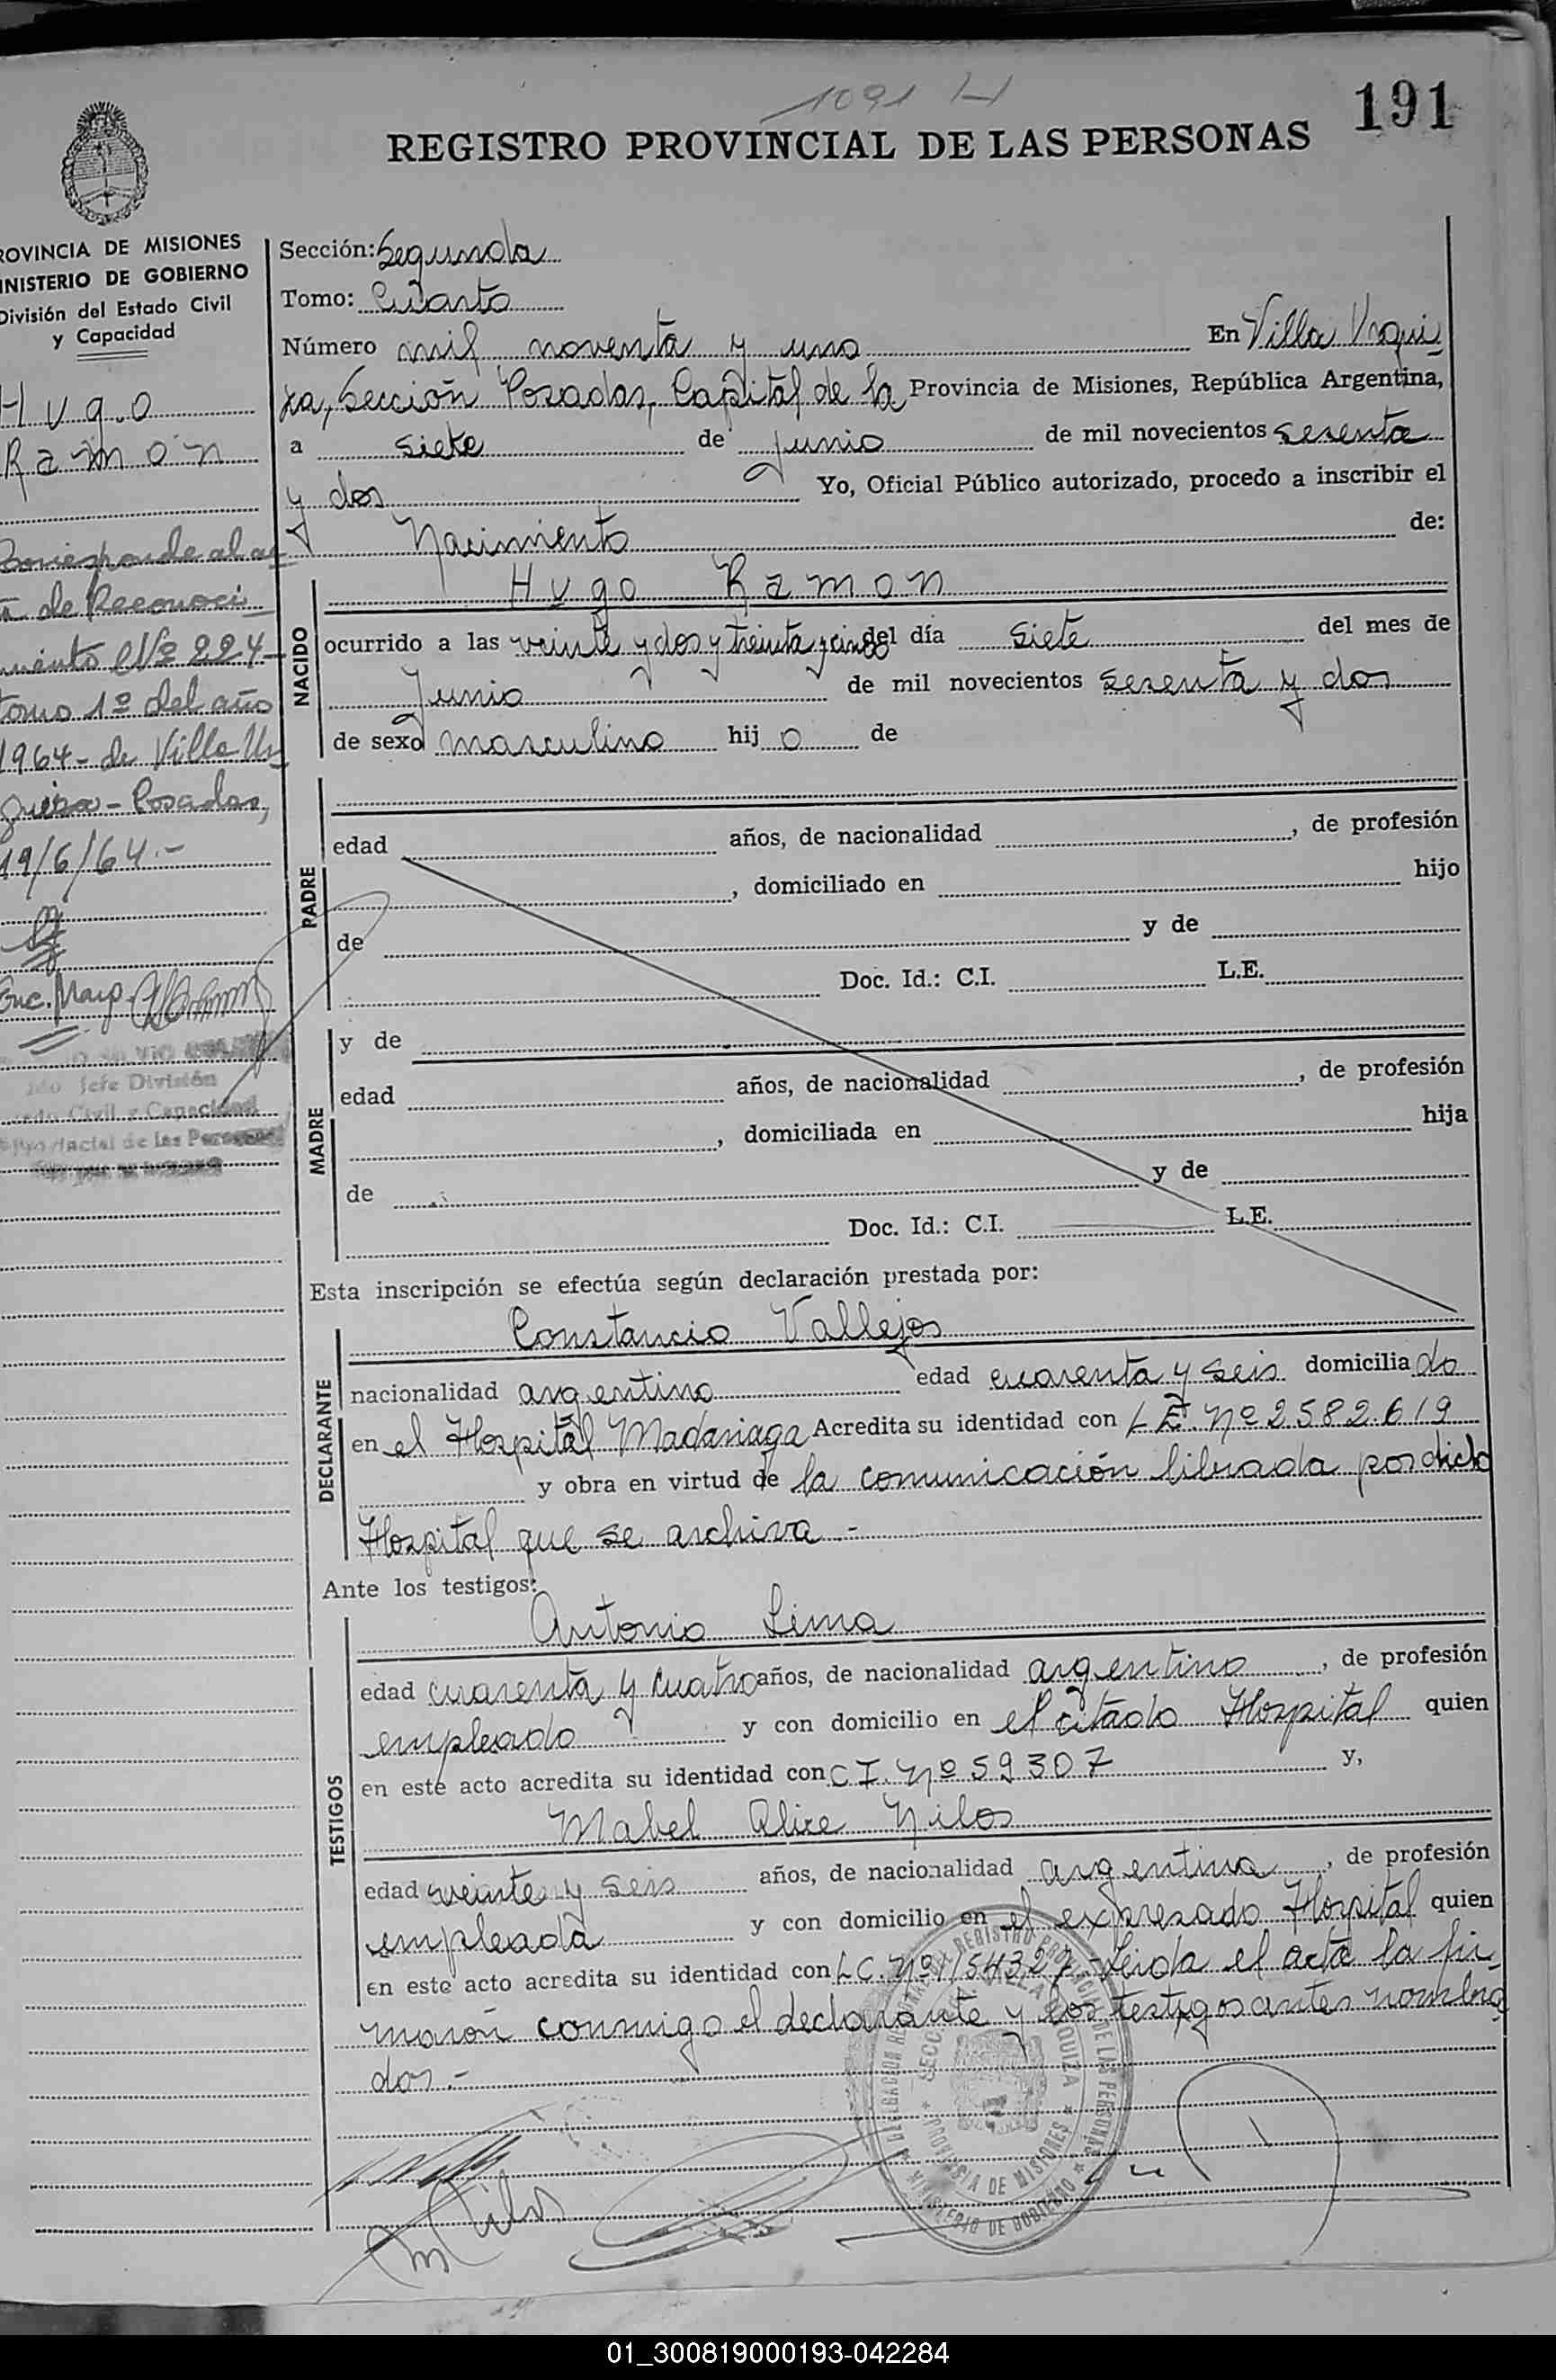 1091 H
191
REGISTRO PROVINCIAL DE LAS PERSONAS
ROVINCIA DE MISIONES
INISTERIO DE GOBIERNO
División del Estado Civil
y Capacidad
Hugo
Ramón
Corresponde al ac
ta de Reconoci
miento Nº 224-
tomo 1º del año
1964- de Villa Ur
quiza- Posadas,
19/6/64.-
Enc. Marg.
Jefe División
Civil y Capacidad
Provincial de las Personas
Sección: Segunda
Tomo: Cuarto
Número mil noventa y uno En Villa Urqui
za, Sección Posadas, Capital de la Provincia de Misiones, República Argentina,
a siete de junio de mil novecientos sesenta
y dos Yo, Oficial Público autorizado, procedo a inscribir el
Nacimiento de:
NACIDO
Hugo Ramon
ocurrido a las veinte y dos y treinta y cinco del día siete del mes de
Junio de mil novecientos sesenta y dos
de sexo masculino hij o de
PADRE
edad años, de nacionalidad , de profesión
, domiciliado en hijo
de y de
Doc. Id.: C.I. L.E.
MADRE
y de
edad años, de nacionalidad , de profesión
, domiciliada en hija
de y de
Doc. Id.: C.I. L.E.
Esta inscripción se efectúa según declaración prestada por:
DECLARANTE
Constancio Vallejos
nacionalidad argentino edad cuarenta y seis domicilia do
en el Hospital Madariaga Acredita su identidad con L E. Nº 2.582.619
y obra en virtud de la comunicación librada por dicho
Hospital que se archiva.-
Ante los testigos:
TESTIGOS
Antonio Lima
edad cuarenta y cuatro años, de nacionalidad argentino , de profesión
empleado y con domicilio en el citado Hospital quien
en este acto acredita su identidad con C I. Nº 59307 y,
Mabel Alice Nilos
edad veinte y seis años, de nacionalidad argentina , de profesión
empleada y con domicilio en el expresado Hospital quien
en este acto acredita su identidad con LC. Nº 1154327- Leida el acta la fir
maron conmigo el declarante y los testigos antes nombra
dos.-
REGISTRO PROVINCIAL DE LAS PERSONAS
MINISTERIO DE GOBIERNO
PROVINCIA DE MISIONES
01_300819000193-042284